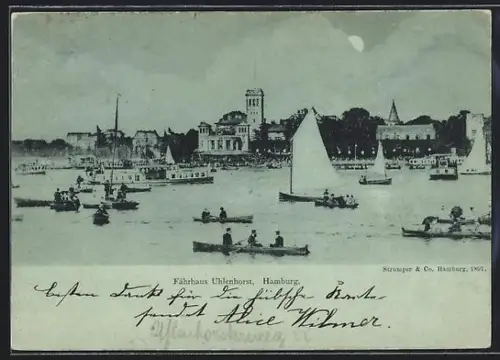 Fährhaus Uhlenhorst, Hamburg.
Strumper & Co. Hamburg, 1897.
Besten Dank für die hübsche Karte
sendet Alice Wilmer.